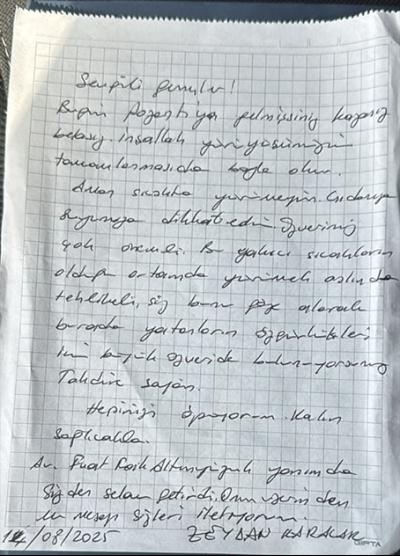 Sevgili gençler!
Bugün Pozantı'ya gelmişsiniz kazasız
belasız inşallah yürüyüşünüzün
tamamlanması da böyle olur.
Aman sıcakta yürümeyin. Gıdanıza
Suyunuza dikkat edin. Özveriniz
çok önemli. Bu yakıcı sıcakların
olduğu ortamda yürümek aslında
tehlikeli, siz bunu göze alarak
burada yatanların özgürlükleri
için büyük özveride bulunuyorsunuz
Takdire şayan.
Hepinizi öpüyorum. Kalın
Sağlıcakla.
Av. Fuat yanımda
Sizden selam getirdi. Onun üzerinden
bu mesajı sizlere iletiyorum.
14/08/2025 ZEYDAN KARALAR